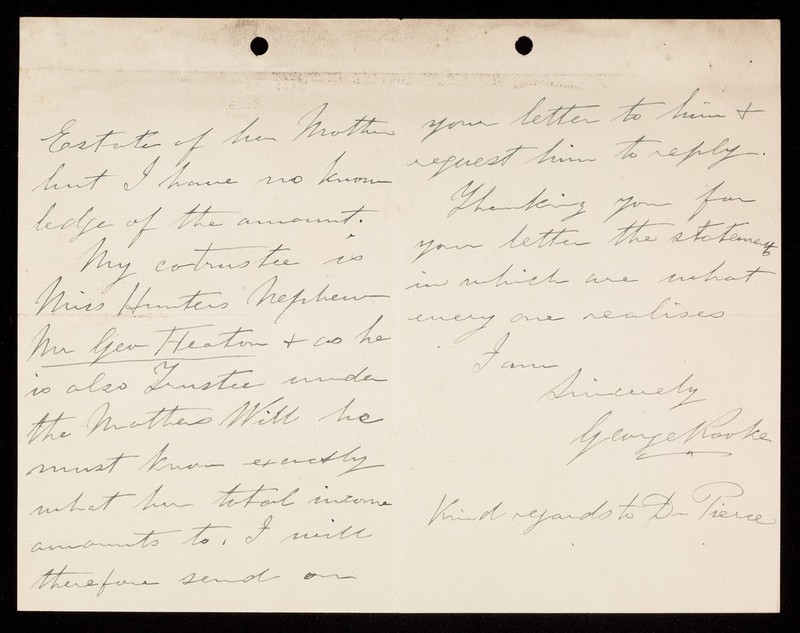 Estate of her Mother
but I have no know
ledge of the amount.
My cotrustee is
Miss Hunters Nephew
Mr Geo Heaton & as he
is also Trustee under
the Mothers Will he
must know exactly
what her total income
amounts to. I will
therefore send on
your letter to him &
request him to reply.
Thanking you for
your letter the statements
in which are what
every one realises
I am
Sincerely
George Rooke
Kind regards to Dr Pierce